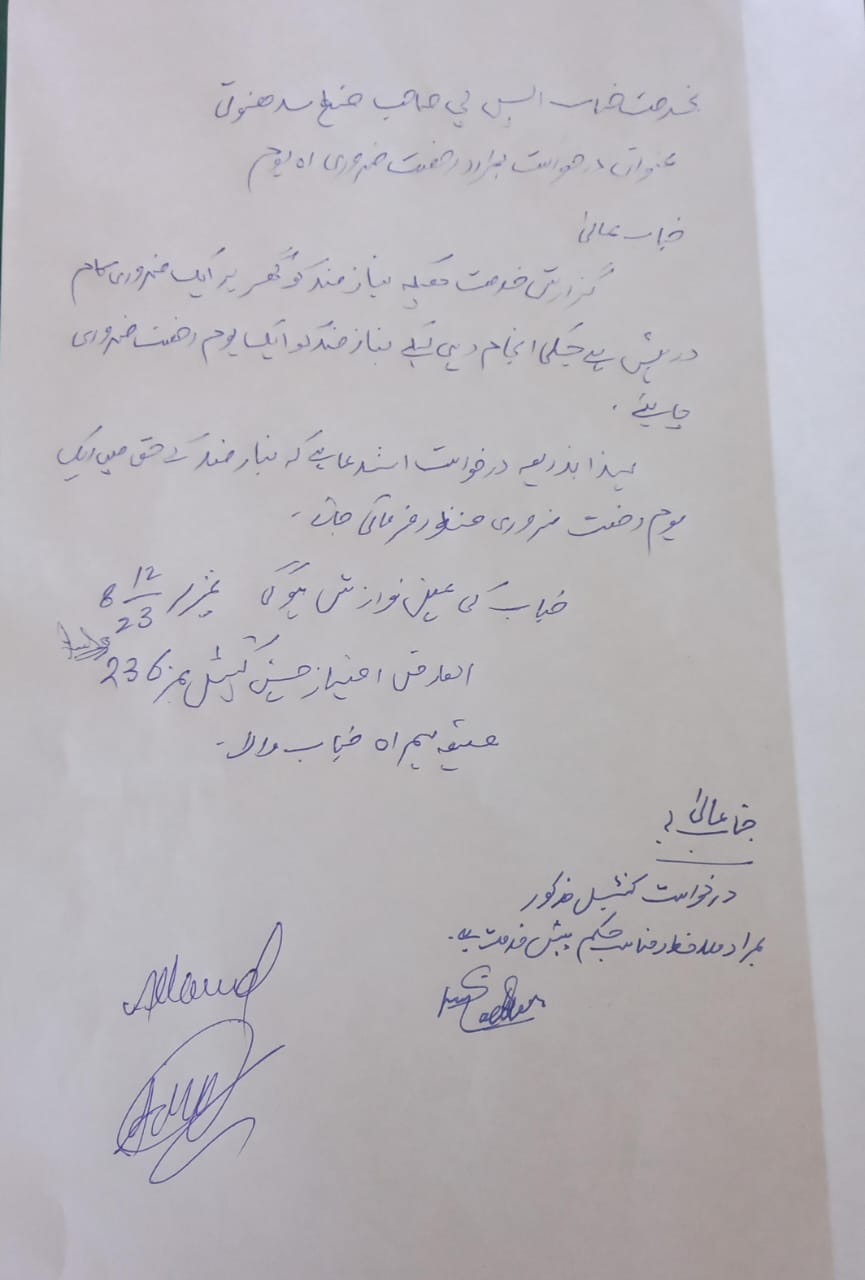 بخدمت جناب ایس پی صاحب ضلع سدھنوتی
عنوان درخواست بمراد رخصت ضروری 01 یوم
جناب عالیٰ
گزارش خدمت ہیکہ نیازمند کو گھر پر ایک ضروری کام
درپیش ہے جسکی انجام دہی کیلئے نیازمند کو ایک یوم رخصت ضروری
چاہیئے ۔
لہذا بذریعہ درخواست استدعا ہے کہ نیازمند کے حق میں ایک
یوم رخصت ضروری منظور فرمائی جائے ۔
جناب کی عین نوازش ہوگی 8 12/23
العارض امتیاز حسین کنسٹیبل نمبر 236
متعینہ ہمراہ جناب والا ۔
جناب عالیٰ !
درخواست کنسٹیبل مذکور
بمراد ملاحظہ و مناسب حکم پیش خدمت ہے ۔
Allowed